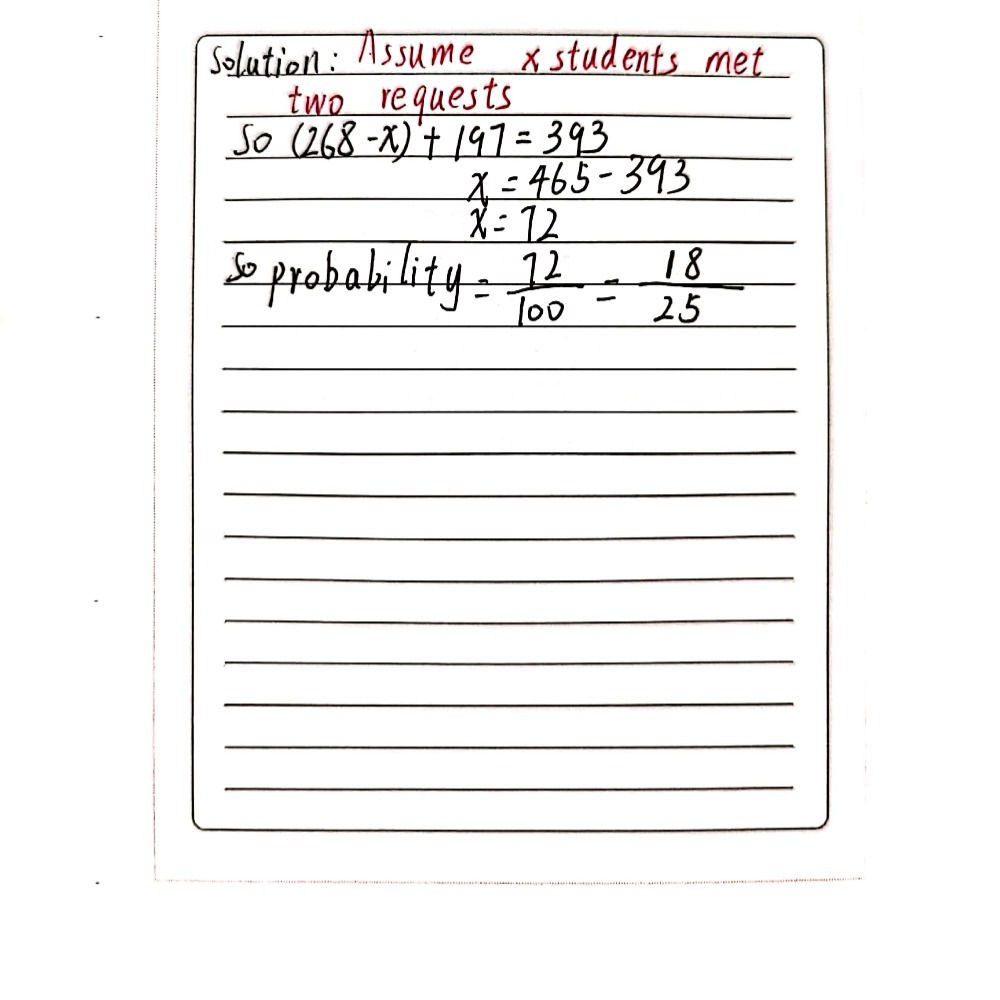 Solution: Assume x students met
two requests
So (268-x)+197=393
x=465-393
x=72
So probability = 72/100 = 18/25